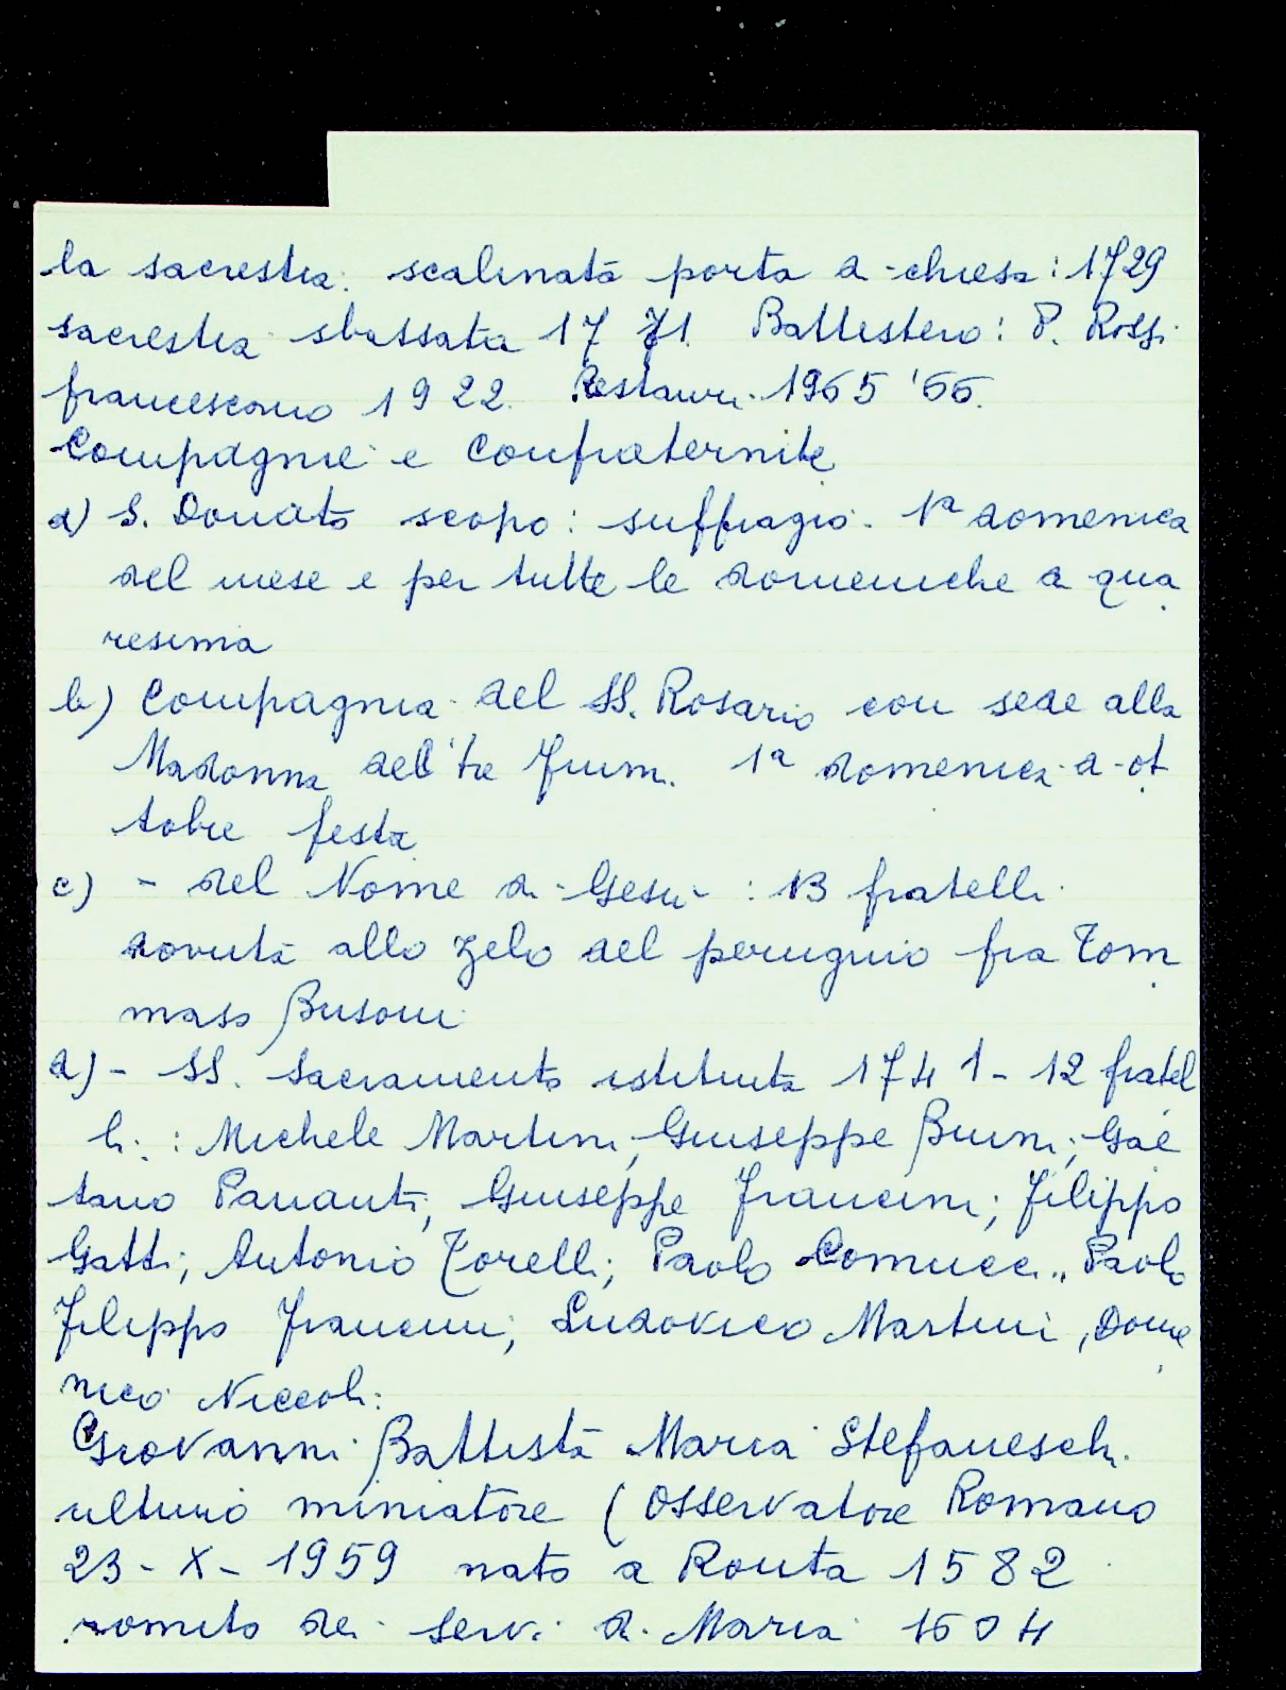 la sacrestia: scalinata porta di chiesa: 1729
sacrestia sbassata 1771. Battistero: P. Rossi
francescano 1922. Restauri 1965 '66.
Compagnie e Confraternite
a) S. Donato scopo: suffragio. 1ª domenica
del mese e per tutte le domeniche di qua
resima
b) Compagnia del SS. Rosario con sede alla
Madonna dei tre fiumi. 1ª domenica di ot
tobre festa
c) - del Nome di Gesù - : 13 fratelli
dovuta allo zelo del perugino fra Tom
maso Busoni
d) - SS. Sacramento istituita 1741 - 12 fratel
li: Michele Martini; Giuseppe Buini; Gae
tano Pananti; Giuseppe Francini; Filippo
Gatti; Antonio Torelli; Paolo Comucci, Paolo
Filippo Francini; Ludovico Martini, Dome
nico Niccoli:
Giovanni Battista Maria Stefaneschi
ultimo miniatore (Osservatore Romano
23-X-1959 nato a Ronta 1582
romito dei Servi di Maria 1604